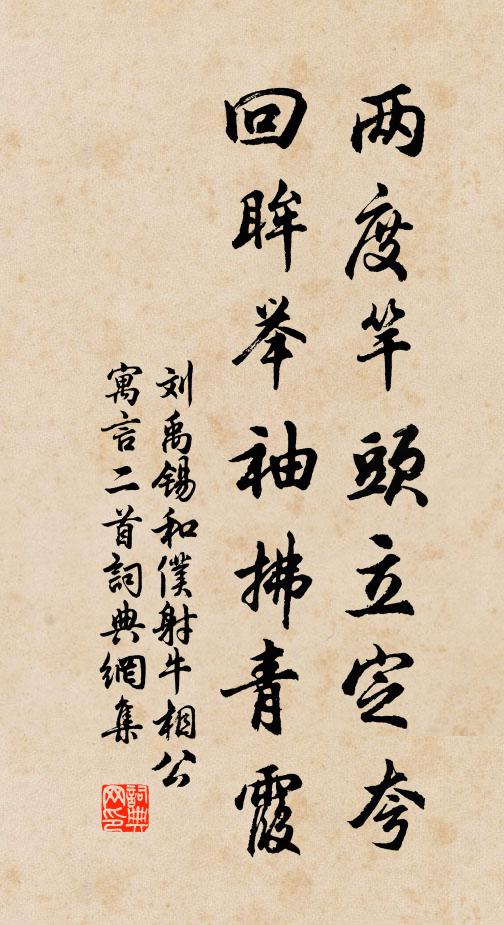 两度竿頭立定夸
回眸举袖拂青霞
刘禹锡和僕射牛相公
寓言二首詞典網集
詞典
网印